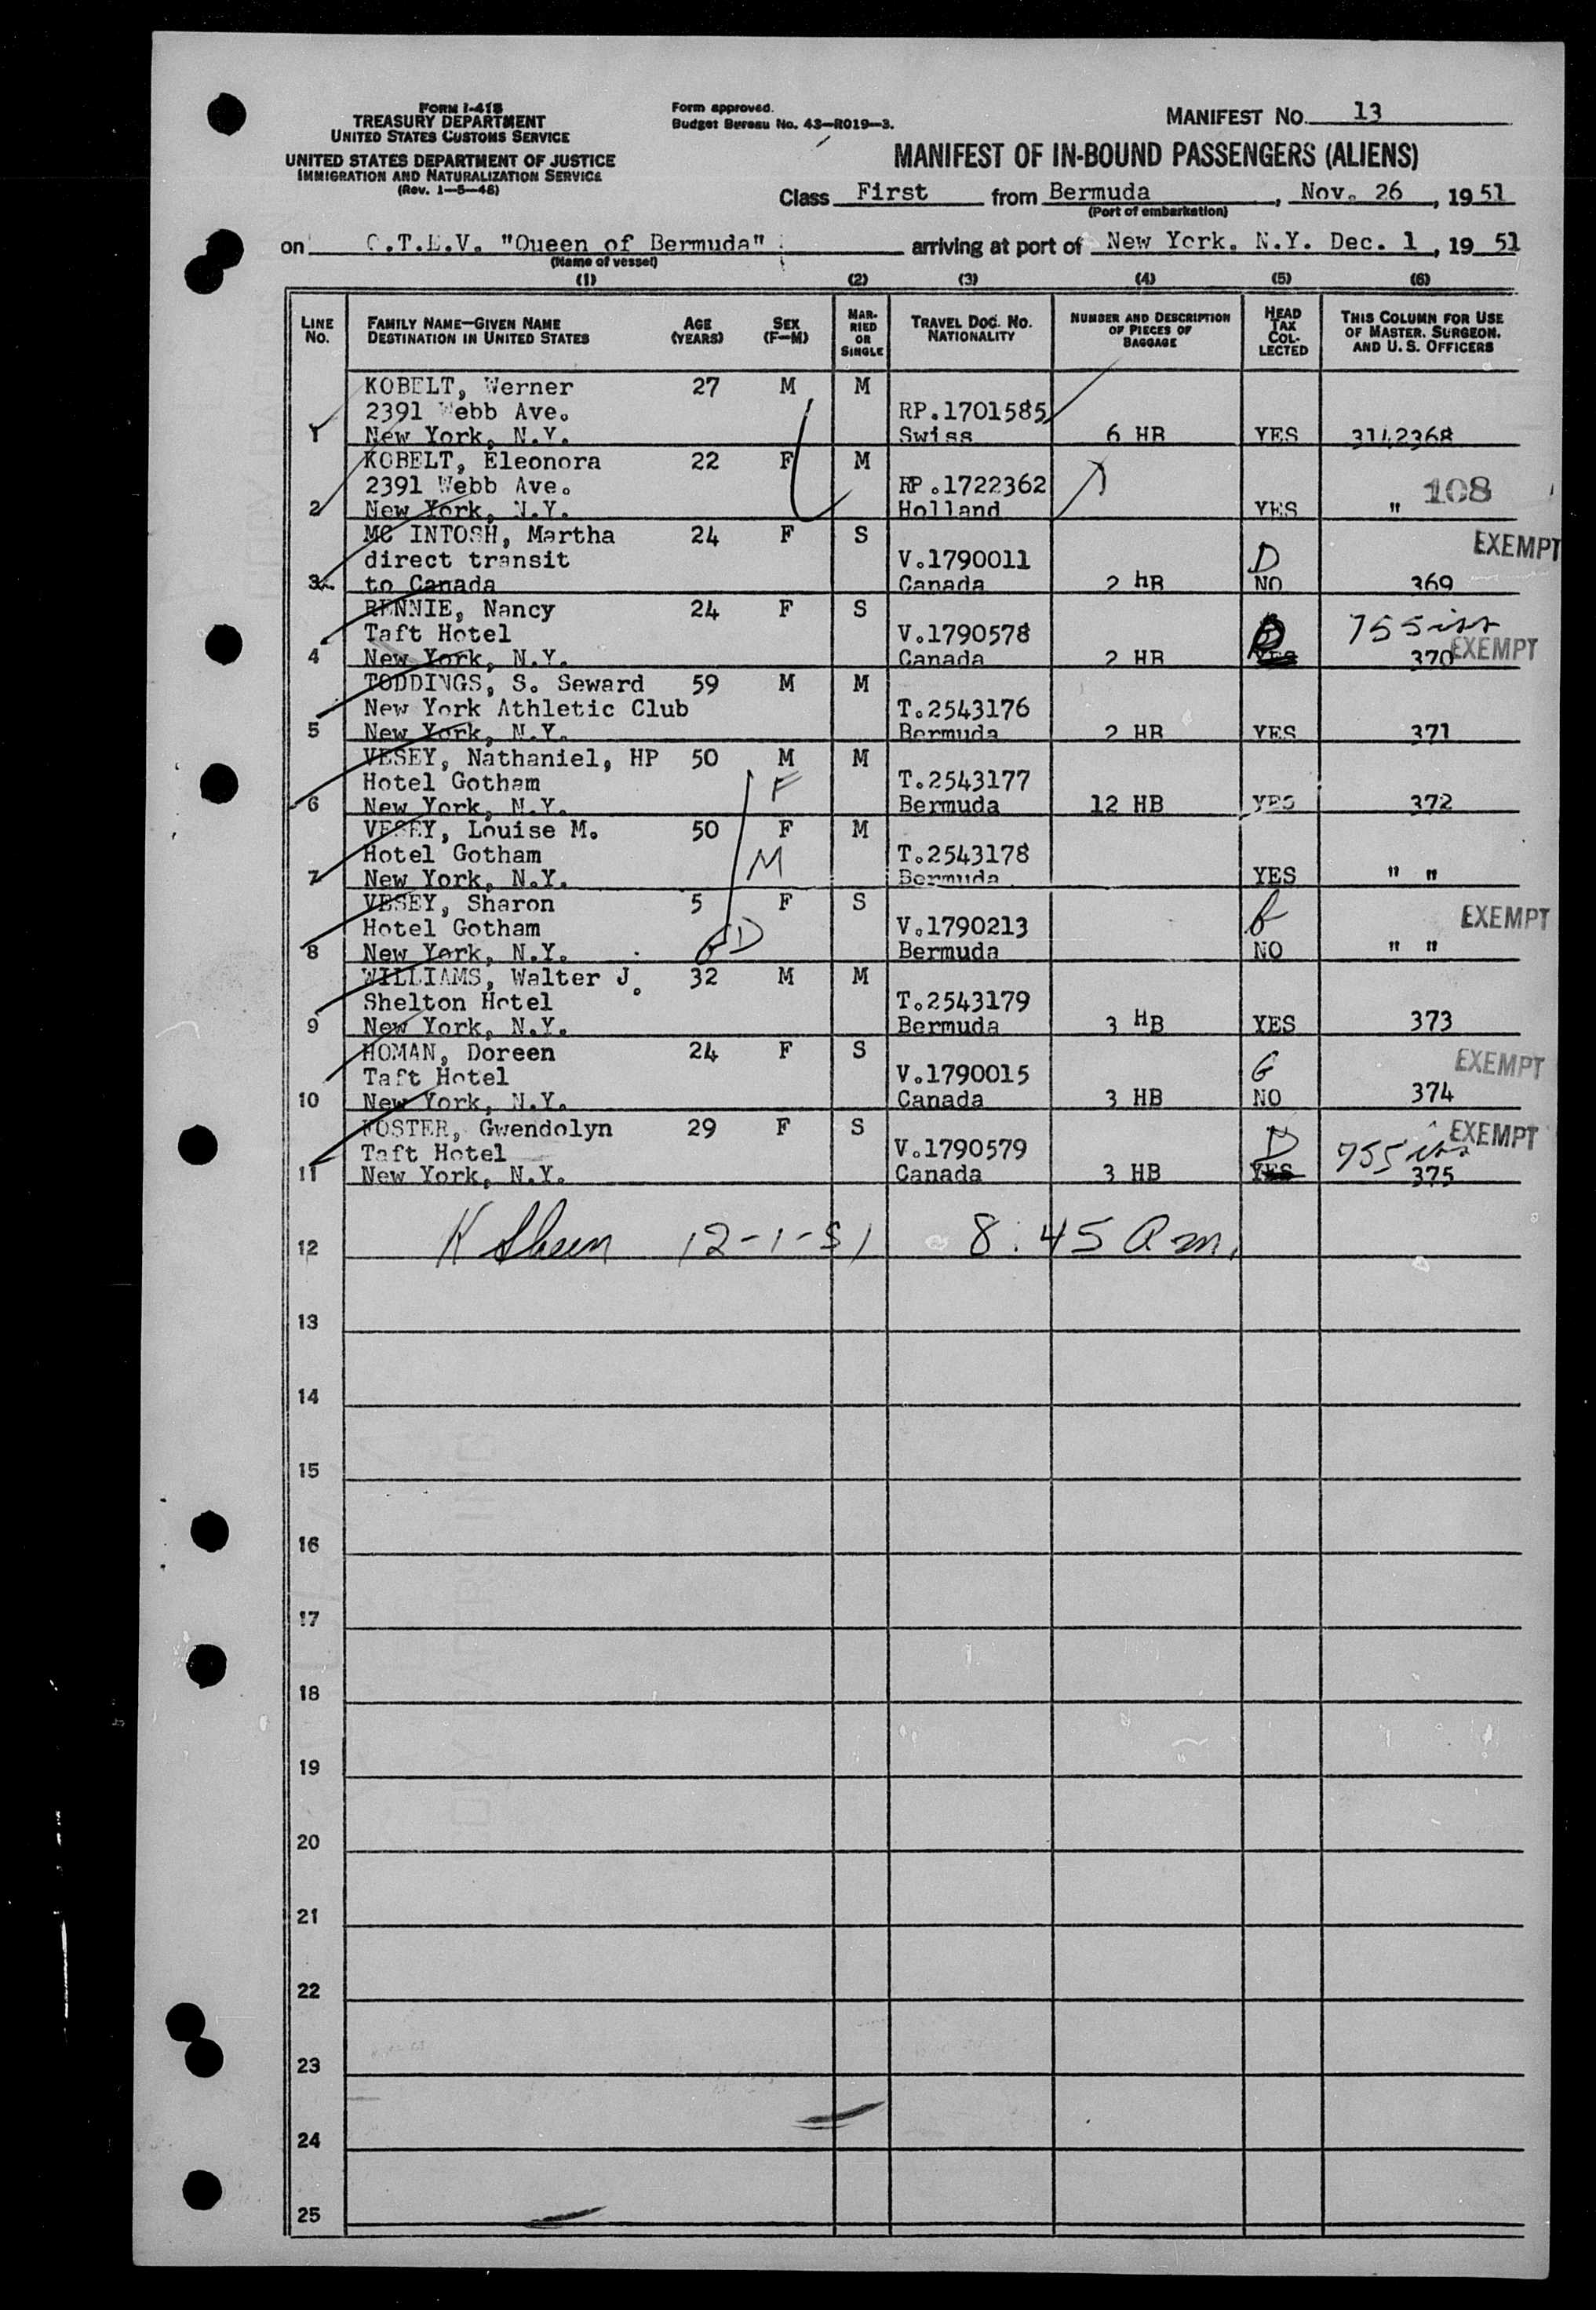 FORM I-418
TREASURY DEPARTMENT
UNITED STATES CUSTOMS SERVICE
UNITED STATES DEPARTMENT OF JUSTICE
IMMIGRATION AND NATURALIZATION SERVICE
(Rev. 1-5-48)
Form approved.
Budget Bureau No. 43-R019-3.
MANIFEST NO. 13
MANIFEST OF IN-BOUND PASSENGERS (ALIENS)
Class First from Bermuda, Nov. 26, 1951
(Port of embarkation)
on "Queen of Bermuda" arriving at port of New York, N.Y. Dec. 1, 19 51
(Name of vessel)
(1) (2) (3) (4) (5) (6)
LINE NO. FAMILY NAME—GIVEN NAME DESTINATION IN UNITED STATES AGE (YEARS) SEX (F—M) MARRIED OR SINGLE TRAVEL DOC. NO. NATIONALITY NUMBER AND DESCRIPTION OF PIECES OF BAGGAGE HEAD TAX COLLECTED THIS COLUMN FOR USE OF MASTER, SURGEON, AND U. S. OFFICERS
KOBELT, Werner 27 M M
2391 Webb Ave. RP.1701585
1 New York, N.Y. Swiss 6 HB YES 3142368
KOBELT, Eleonora 22 F M
2391 Webb Ave. RP.1722362 108
2 New York, N.Y. Holland YES "
MC INTOSH, Martha 24 F S EXEMPT
direct transit V.1790011 D
3 to Canada Canada 2 hB NO 369
RENNIE, Nancy 24 F S
Taft Hotel V.1790578 D 755
4 New York, N.Y. Canada 2 HB YES 370 EXEMPT
TODDINGS, S. Seward 59 M M
New York Athletic Club T.2543176
5 New York, N.Y. Bermuda 2 HB YES 371
VESEY, Nathaniel, HP 50 M M
Hotel Gotham F T.2543177
6 New York, N.Y. Bermuda 12 HB YES 372
VESEY, Louise M. 50 F M
Hotel Gotham M T.2543178
7 New York, N.Y. Bermuda YES " "
VESEY, Sharon 5 F S EXEMPT
Hotel Gotham V.1790213
8 New York, N.Y. D Bermuda NO " "
WILLIAMS, Walter J. 32 M M
Shelton Hotel T.2543179
9 New York, N.Y. Bermuda 3 HB YES 373
HOMAN, Doreen 24 F S EXEMPT
Taft Hotel V.1790015 G
10 New York, N.Y. Canada 3 HB NO 374
FOSTER, Gwendolyn 29 F S EXEMPT
Taft Hotel V.1790579 D 755
11 New York, N.Y. Canada 3 HB YES 375
12 K Sheen 12-1-51 8:45 am.
13
14
15
16
17
18
19
20
21
22
23
24
25